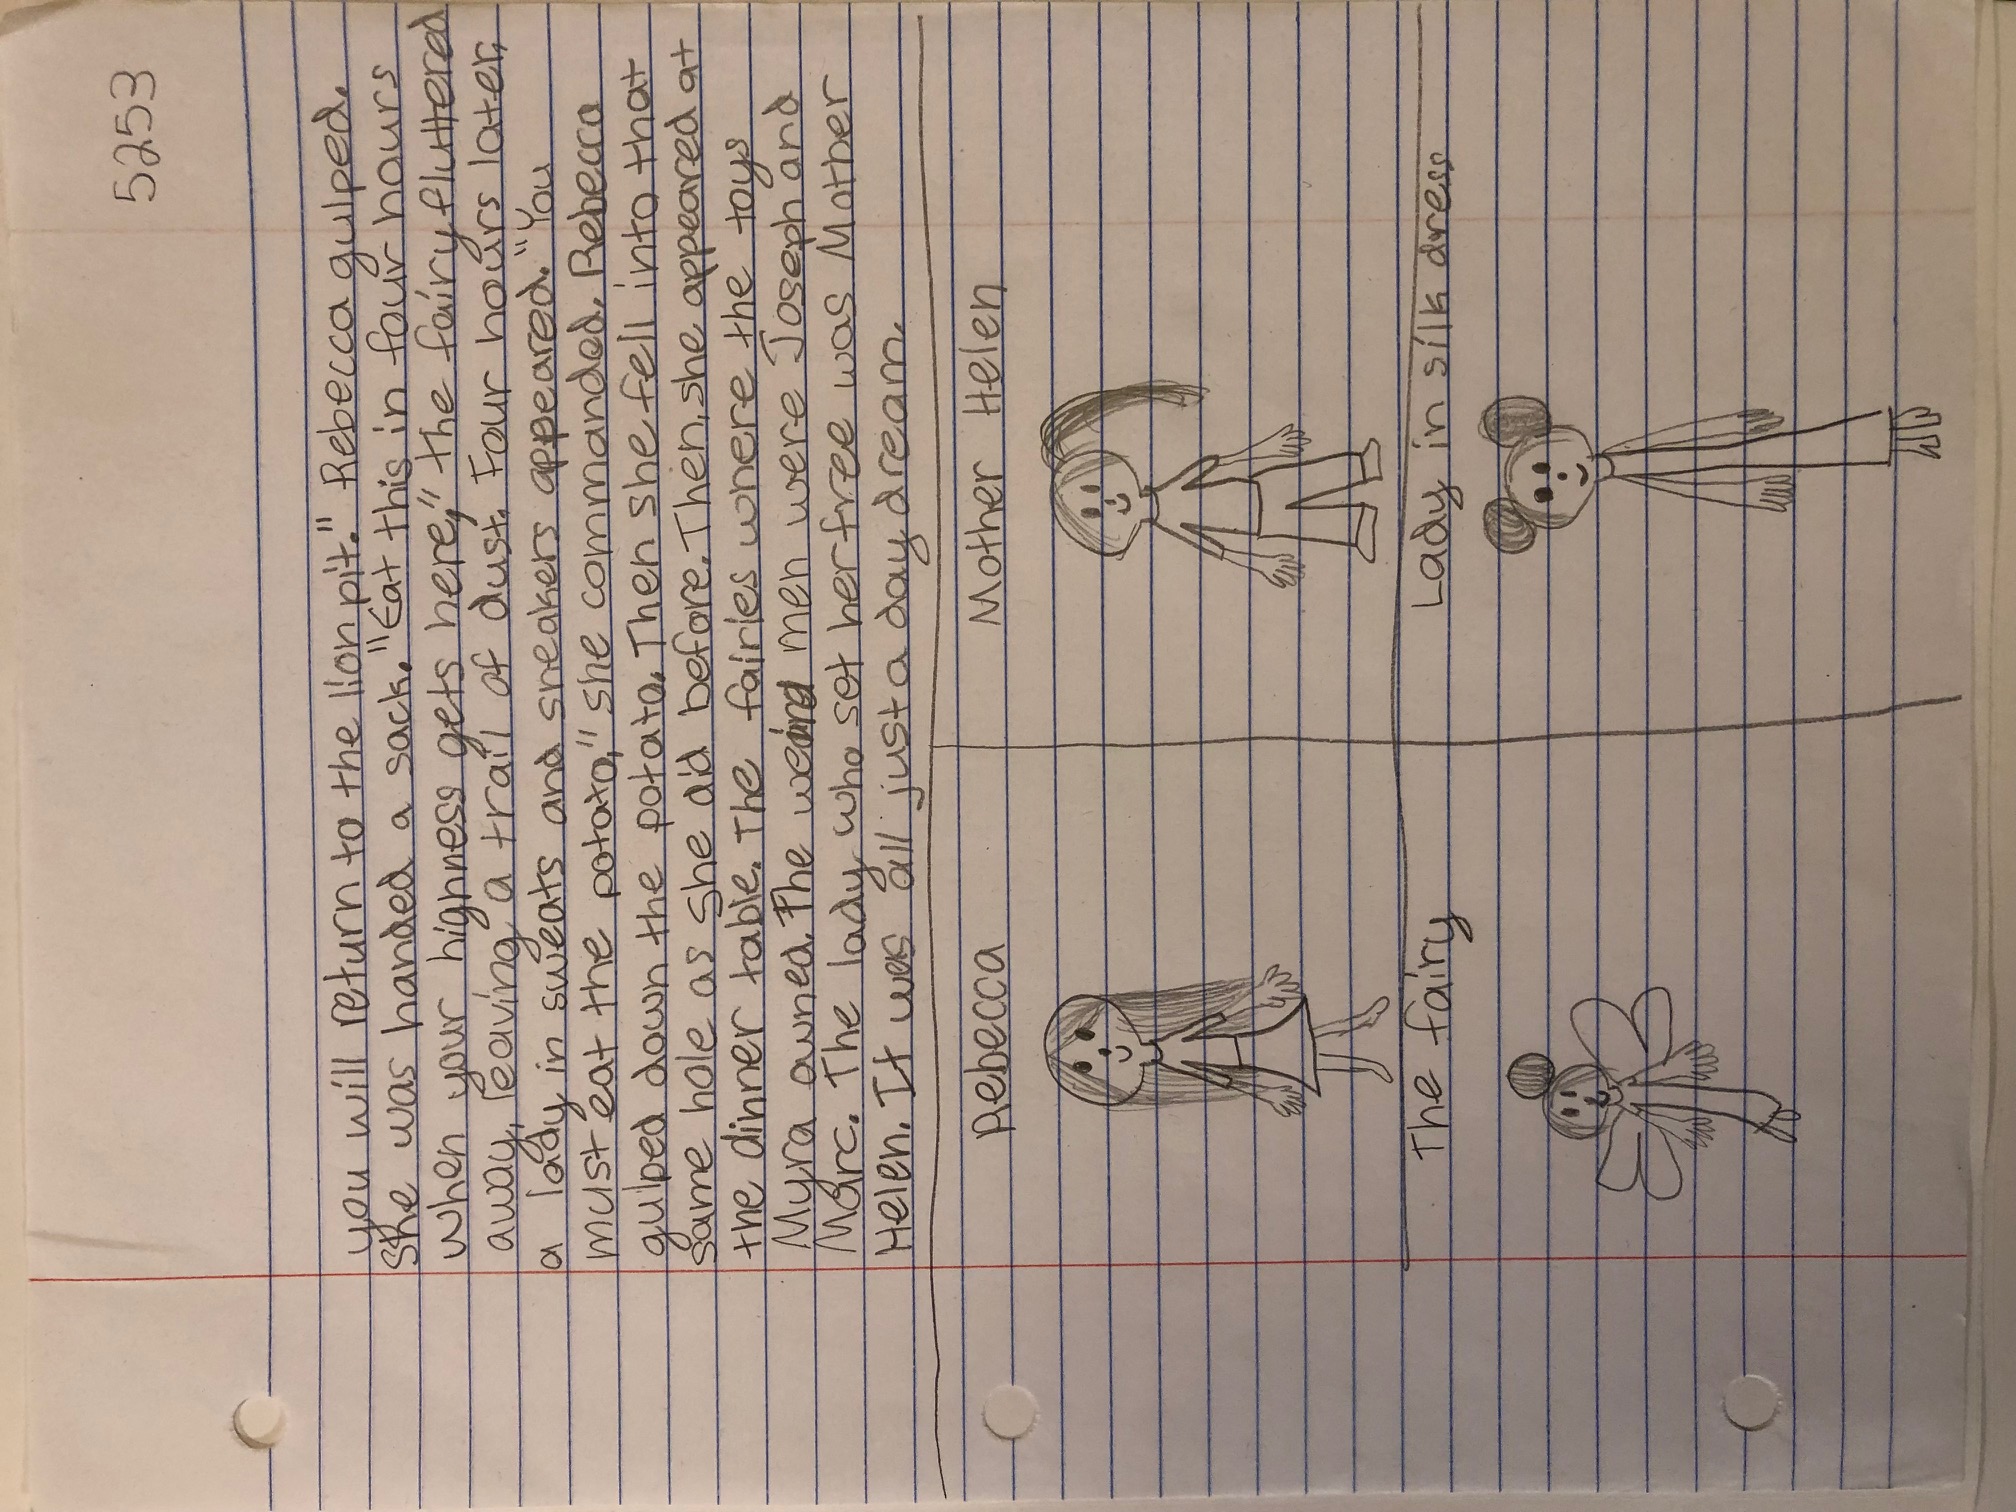 5253
you will return to the lion pit." Rebecca gulped.
She was handed a sack. "Eat this in four hours
when your highness gets here," the fairy fluttered
away, leaving a trail of dust. Four hours later,
a lady in sweats and sneakers appeared. "You
must eat the potato," she commanded. Rebecca
gulped down the potato. Then she fell into that
same hole as she did before. Then, she appeared at
the dinner table. The fairies where the toys
Myra owned. The weird men were Joseph and
Marc. The lady who set her free was Mother
Helen. It was all just a day dream.
Rebecca
Mother Helen
The fairy
Lady in silk dress